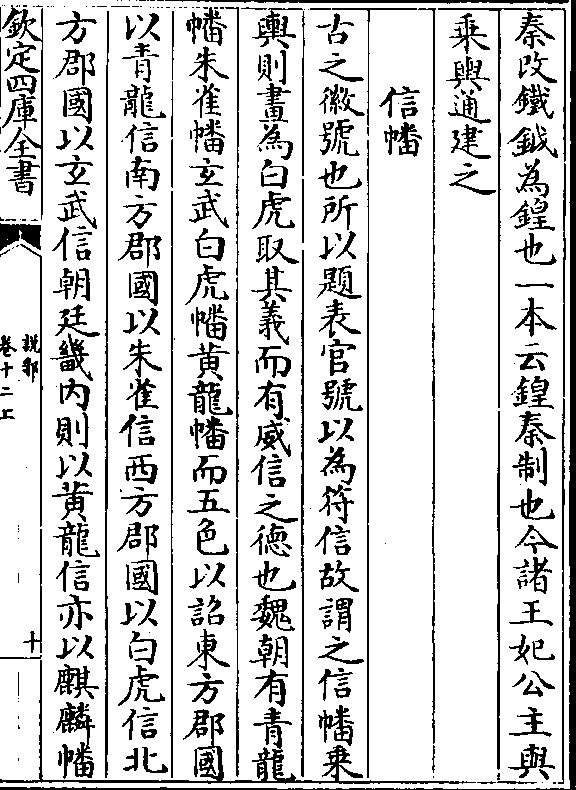 秦改鐵鉞為鍠也一本云鍠秦制也今諸王妃公主與
乘輿通建之
信幡
古之徽號也所以題表官號以為符信故謂之信幡乗
輿則畫為白虎取其義而有威信之德也魏朝有青龍
幡朱雀幡玄武白虎幡黄龍幡而五色以詔東方郡國
以青龍信南方郡國以朱雀信西方郡國以白虎信北
方郡國以玄武信朝廷畿内則以黄龍信亦以麒麟幡
欽定四庫全書
說郛
卷十二上
十